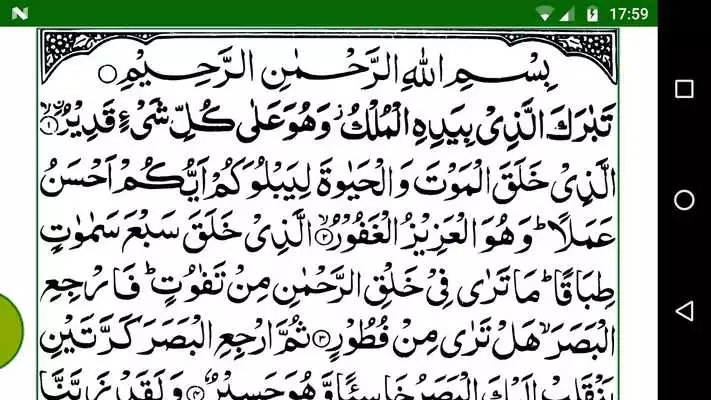 17:59
بِسْمِ اللهِ الرَّحْمٰنِ الرَّحِيْمِ
تَبٰرَكَ الَّذِىْ بِيَدِهِ الْمُلْكُ ۫ وَهُوَ عَلٰى كُلِّ شَىْءٍ قَدِيْرُ ۙ﴿۱﴾
الَّذِىْ خَلَقَ الْمَوْتَ وَالْحَيٰوةَ لِيَبْلُوَكُمْ اَيُّكُمْ اَحْسَنُ
عَمَلًا ؕ وَهُوَ الْعَزِيْزُ الْغَفُوْرُ ۙ﴿۲﴾ الَّذِىْ خَلَقَ سَبْعَ سَمٰوٰتٍ
طِبَاقًا ؕ مَا تَرٰى فِىْ خَلْقِ الرَّحْمٰنِ مِنْ تَفٰوُتٍ ؕ فَارْجِعِ
الْبَصَرَ ۙ هَلْ تَرٰى مِنْ فُطُوْرٍ ﴿۳﴾ ثُمَّ ارْجِعِ الْبَصَرَ كَرَّتَيْنِ
يَنْقَلِبْ اِلَيْكَ الْبَصَرُ خَاسِئًا وَّهُوَ حَسِيْرٌ ﴿۴﴾ وَلَقَدْ زَيَّنَّا